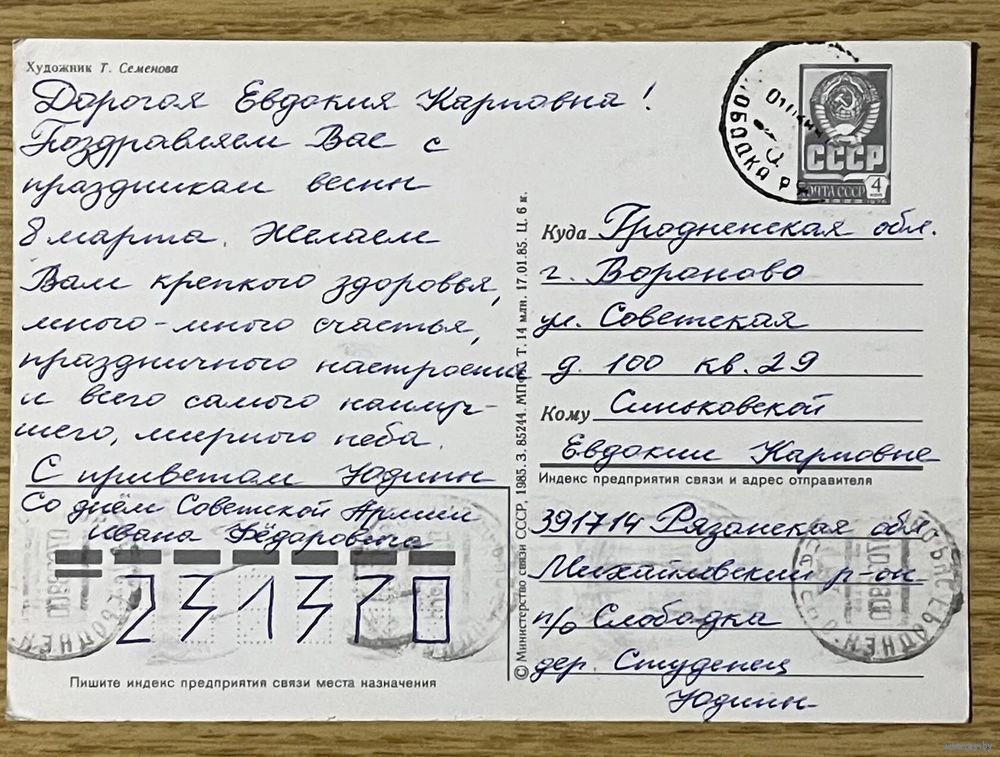 Художник Т. Семенова
Дорогая Евдокия Карповна!
Поздравляем Вас с
праздником весны
8 марта. Желаем
Вам крепкого здоровья,
много-много счастья,
праздничного настроения
и всего самого наилуч-
шего, мирного неба.
С приветом Юдины
Со днём Советской Армии
Ивана Фёдоровича
231370
Пишите индекс предприятия связи места назначения
© Министерство связи СССР, 1985. З. 85244. МПФГ. Т. 14 млн. 17.01.85. Ц. 6 к.
СССР
ПОЧТА СССР
4
1976
СЛОБОДКА
Куда Гродненская обл.
г. Вороново
ул. Советская
д. 100 кв. 29
Кому Синьковской
Евдокии Карповне
Индекс предприятия связи и адрес отправителя
391714 Рязанская обл
Михайловский р-он
п/о Слободка
дер. Студенец
Юдины